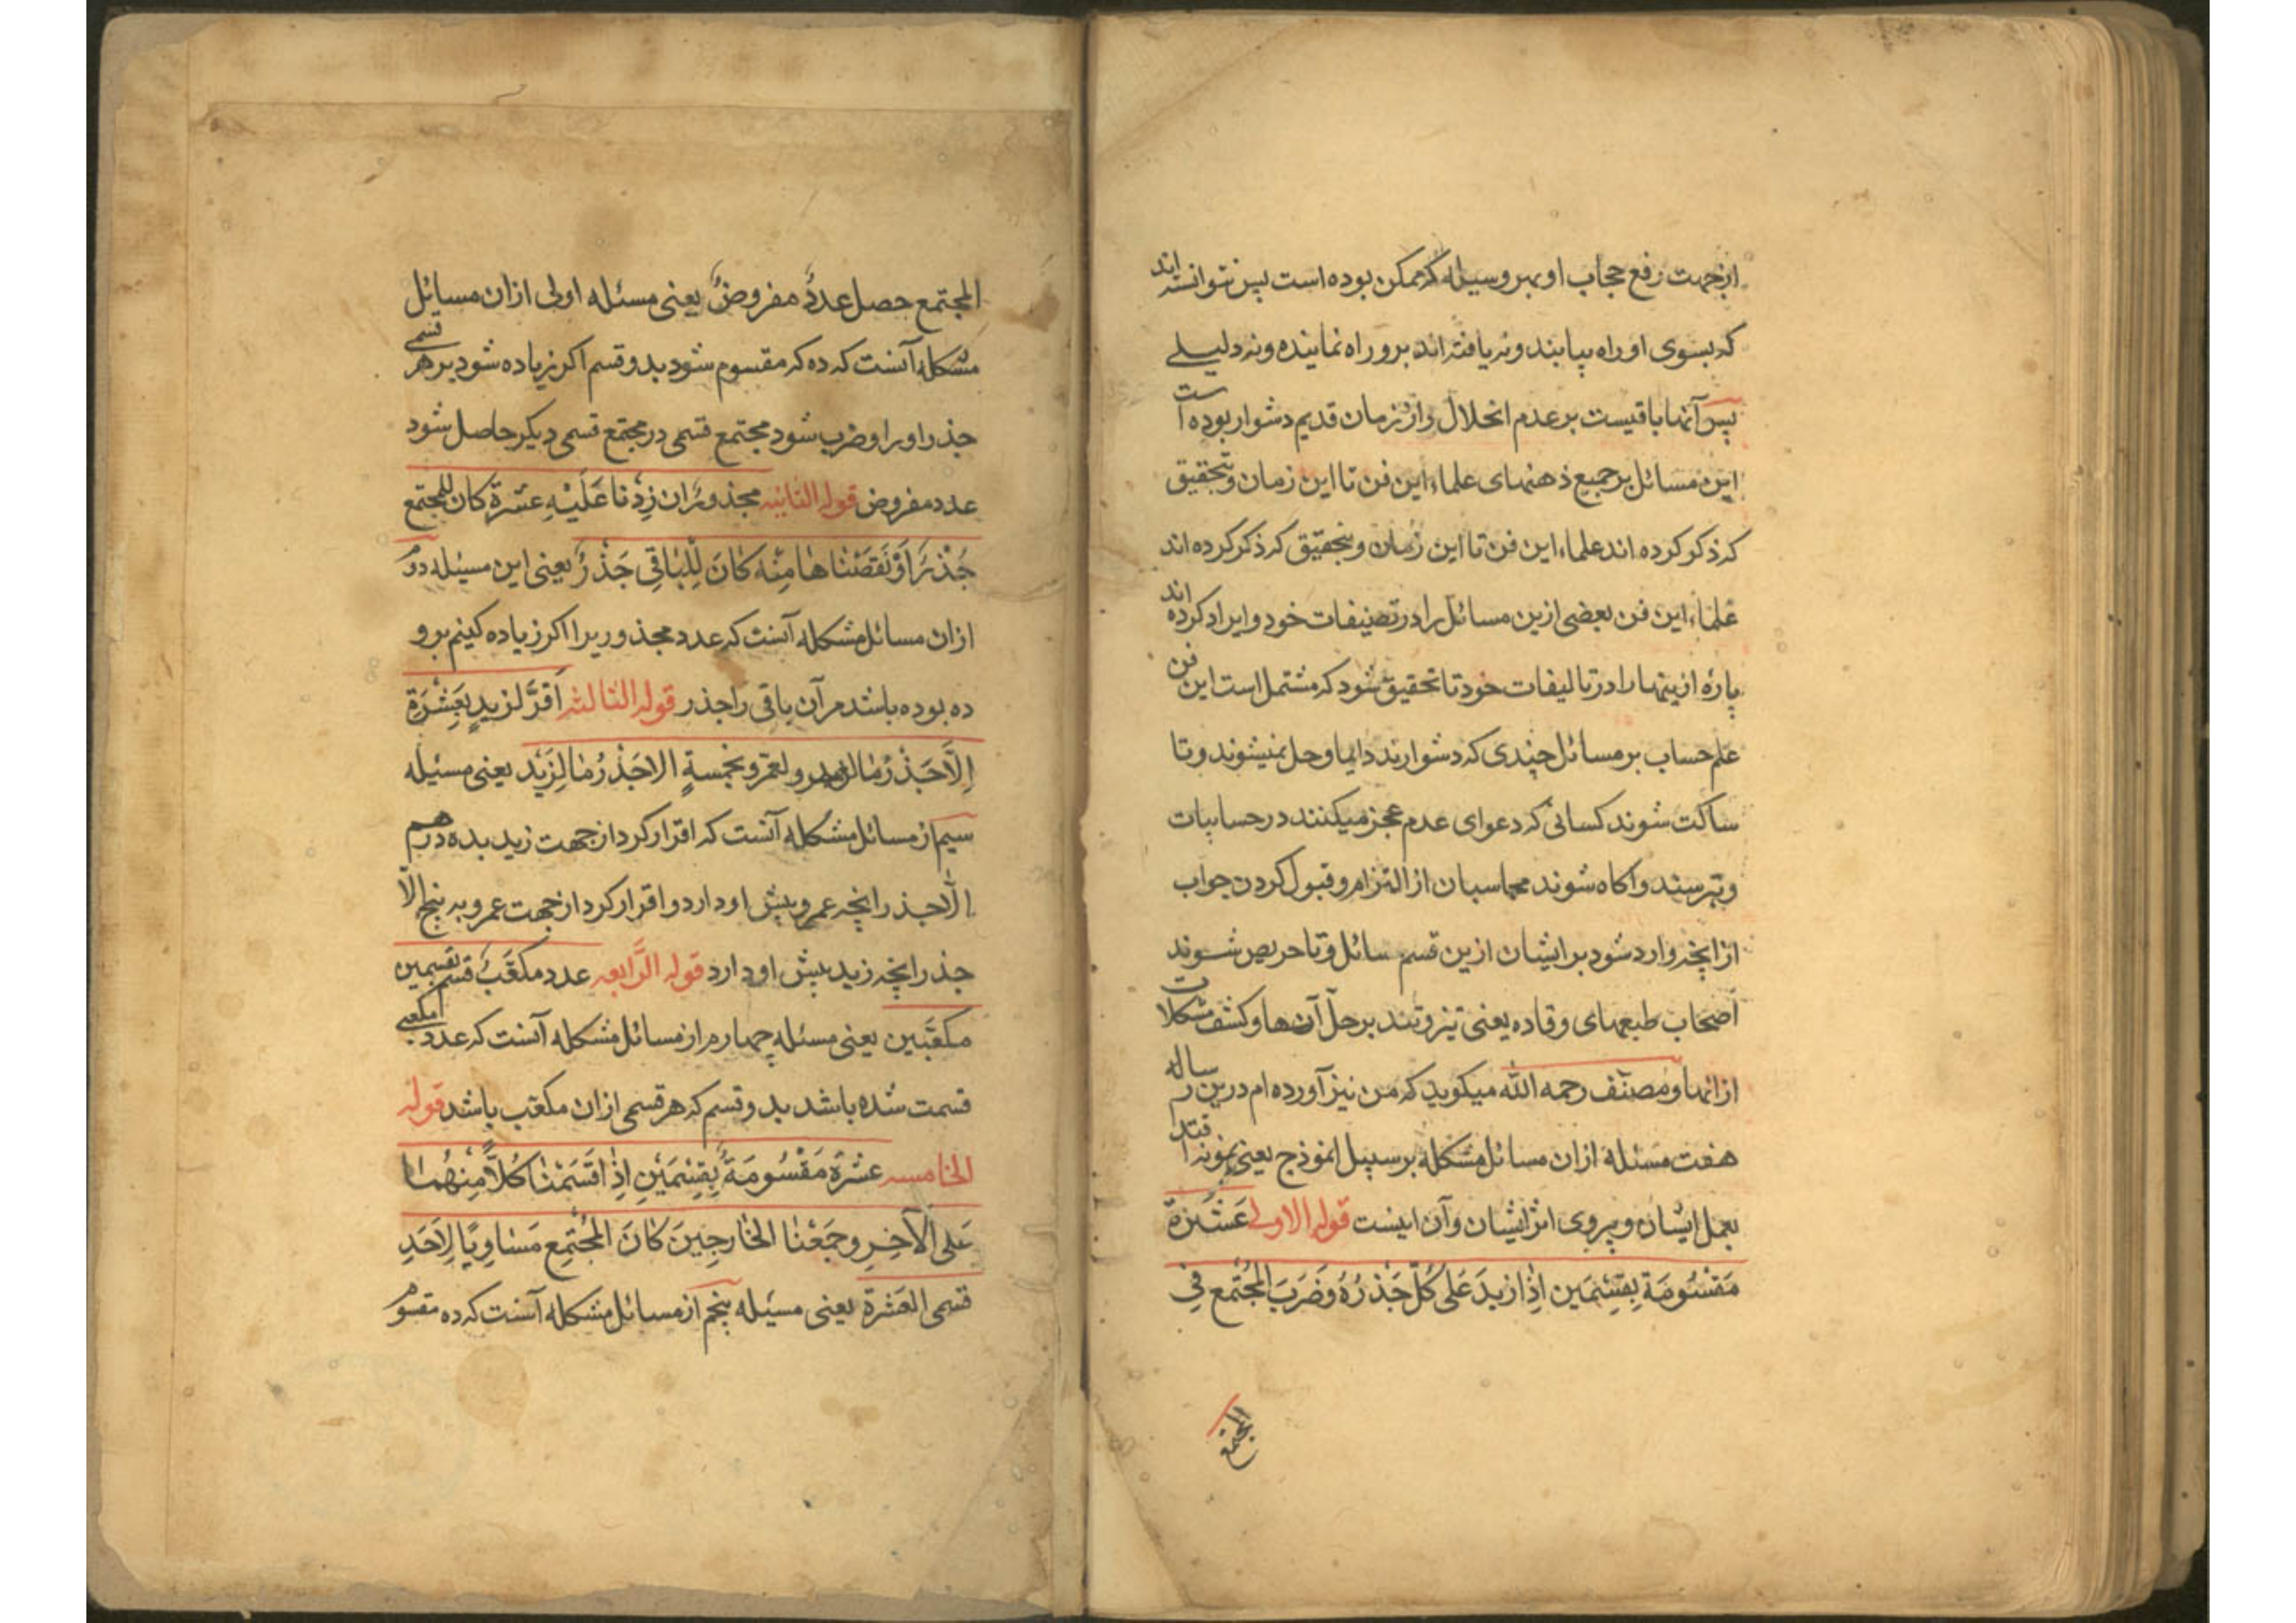 ازجهت رفع حجاب او بهر وسیله که ممکن بوده است پس نتوانسته اند
که بسوی او راه بیابند و نه یافته اند برو راه نماینده و نه دلیلے
پس آنها باقیست بر عدم انحلال و از زمان قدیم دشوار بوده است
این مسائل بر جمیع ذهنهای علماء این فن تا این زمان و بتحقیق
که ذکر کرده اند علماء این فن تا این زمان و بتحقیق که ذکر کرده اند
علماء این فن بعضی ازین مسائل را در تصنیفات خود و ایراد کرده اند
پارهٔ ازینها را در تالیفات خود تا تحقیق شود که مشتمل است این فن
علم حساب بر مسائل چندی که دشوارند دایما و حل نمیشوند و تا
ساکت شوند کسانی که دعوای عدم عجز میکنند در حسابیات
و بترسند و اکاه شوند محاسبان از التزام و قبول کردن جواب
از انچه وارد شود بر ایشان ازین قسم سائل و تا حریص شوند
اصحاب طبعهای وقاده یعنی تیز و تند بر حل آن ها و کشف مشکلات
از انها و مصنف رحمه الله میکوید که من نیز آورده ام درین رساله
هفت مسئله از ان مسائل مشکله بر سبیل انموذج یعنی نمونه اقتد
بعمل ایشان و پیروی اثر ایشان و آن اینست قوله الاولی عَشَرَةٌ
مَقْسُومَة بِقِسْمَین اِذِا زیدَ عَلی کُلّ جَذْرُهُ وَضَرَبَ المُجْتَمع فِي
المجتمع
المجتمع حصل عددٌ مفروضٌ یعنی مسئله اولی از ان مسائل
مشکله آنست که ده که مقسوم شود بدو قسم اکر زیاده شود بر هر قسمی
جذر او را و ضرب شود مجتمع قسمی در مجتمع قسمی دیکر حاصل شود
عدد مفروض قوله الثانیه مجذورٌ ان زِدْنا عَلَیْهِ عَشرة کان للمجتمع
جَذْرٌ اَوْ نَقَصْنا ها مِنْه کانَ لِلْباقی جَذْرٌ یعنی این مسیله دوم
از ان مسائل مشکله آنست که عدد مجذوریرا اکر زیاده کنیم برو
ده بوده باشد مر آن باقی را جذر قوله الثالثه اَقَرَّ لزیدٍ بِعَشْرَةٍ
اِلّا جَذْرُ ما لعمرو ولعمرو بخمسةٍ الا جَذْرُ ما لِزَیْد یعنی مسیله
سیم از مسائل مشکله آنست که اقرار کرد از جهت زید بده درهم
الّا جذر انچه عمرو پیش او دارد و اقرار کرد از جهت عمرو به پنج الّا
جذر انچه زید پیش او دارد قوله الرّابعه عدد مکعّبٌ قسم بقسمین
مکعّبین یعنی مسئله چهارم از مسائل مشکله آنست که عدد مکعبی
قسمت شده باشد بدو قسم که هر قسمی از ان مکعّب باشد قوله
الخامسه عشرة مَقْسُومَةٌ بِقِسْمَیْنِ اِذِا قَسَمْنا کُلّاً مِنْهُما
عَلی الآخِرِ وجَمَعْنا الخارِجینَ کانَ المُجْتَمِع مَساوِیًا لِاَحَدِ
قسمی العَشْرة یعنی مسیله پنجم از مسائل مشکله آنست که ده مقسوم